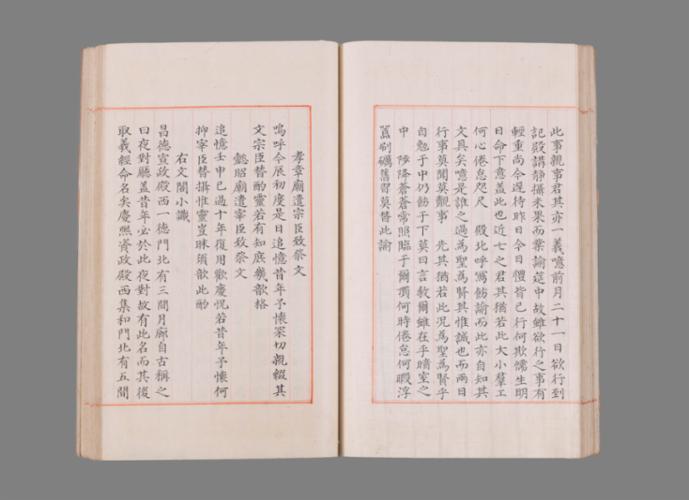 此事親事君其亦一義噫前月二十一日欲行到
記殿講靜攝未果而業諭筵中故雖欲行之事有
輕重尚今遲待昨日令日體皆已行何欺懦生明
日命下意蓋此也近七之君其猶若此大小羣工
何心倦怠咫尺 殿北呼寫飭諭而此亦自知其
文具矣噫是誰之過為聖為賢其惟誠也而兩日
行事莫聞莫觀事 先其猶若此況為聖為賢乎
自勉于中仍飭于下莫曰言教爾雖在乎暗室之
中 陟降蒼蒼常照臨于爾潛何時倦怠何暇浮
囂刷礪舊習莫替此諭
孝章廟遣宗臣致祭文
嗚呼今辰初度是日追憶昔年予懷深切親綴其
文宗臣替酌靈若有知庶幾歆格
懿昭廟遣宰臣致祭文
追憶壬申已過十年復用歡慶怳若昔年予懷何
抑宰臣替攝惟靈豈昧須歆此酌
右文閣小識
昌德宣政殿西一德門北有三間月廊自古稱之
曰夜對廳蓋昔年必於此夜對故有此名而其後
取義經命名矣慶熙資政殿西集和門北有五間